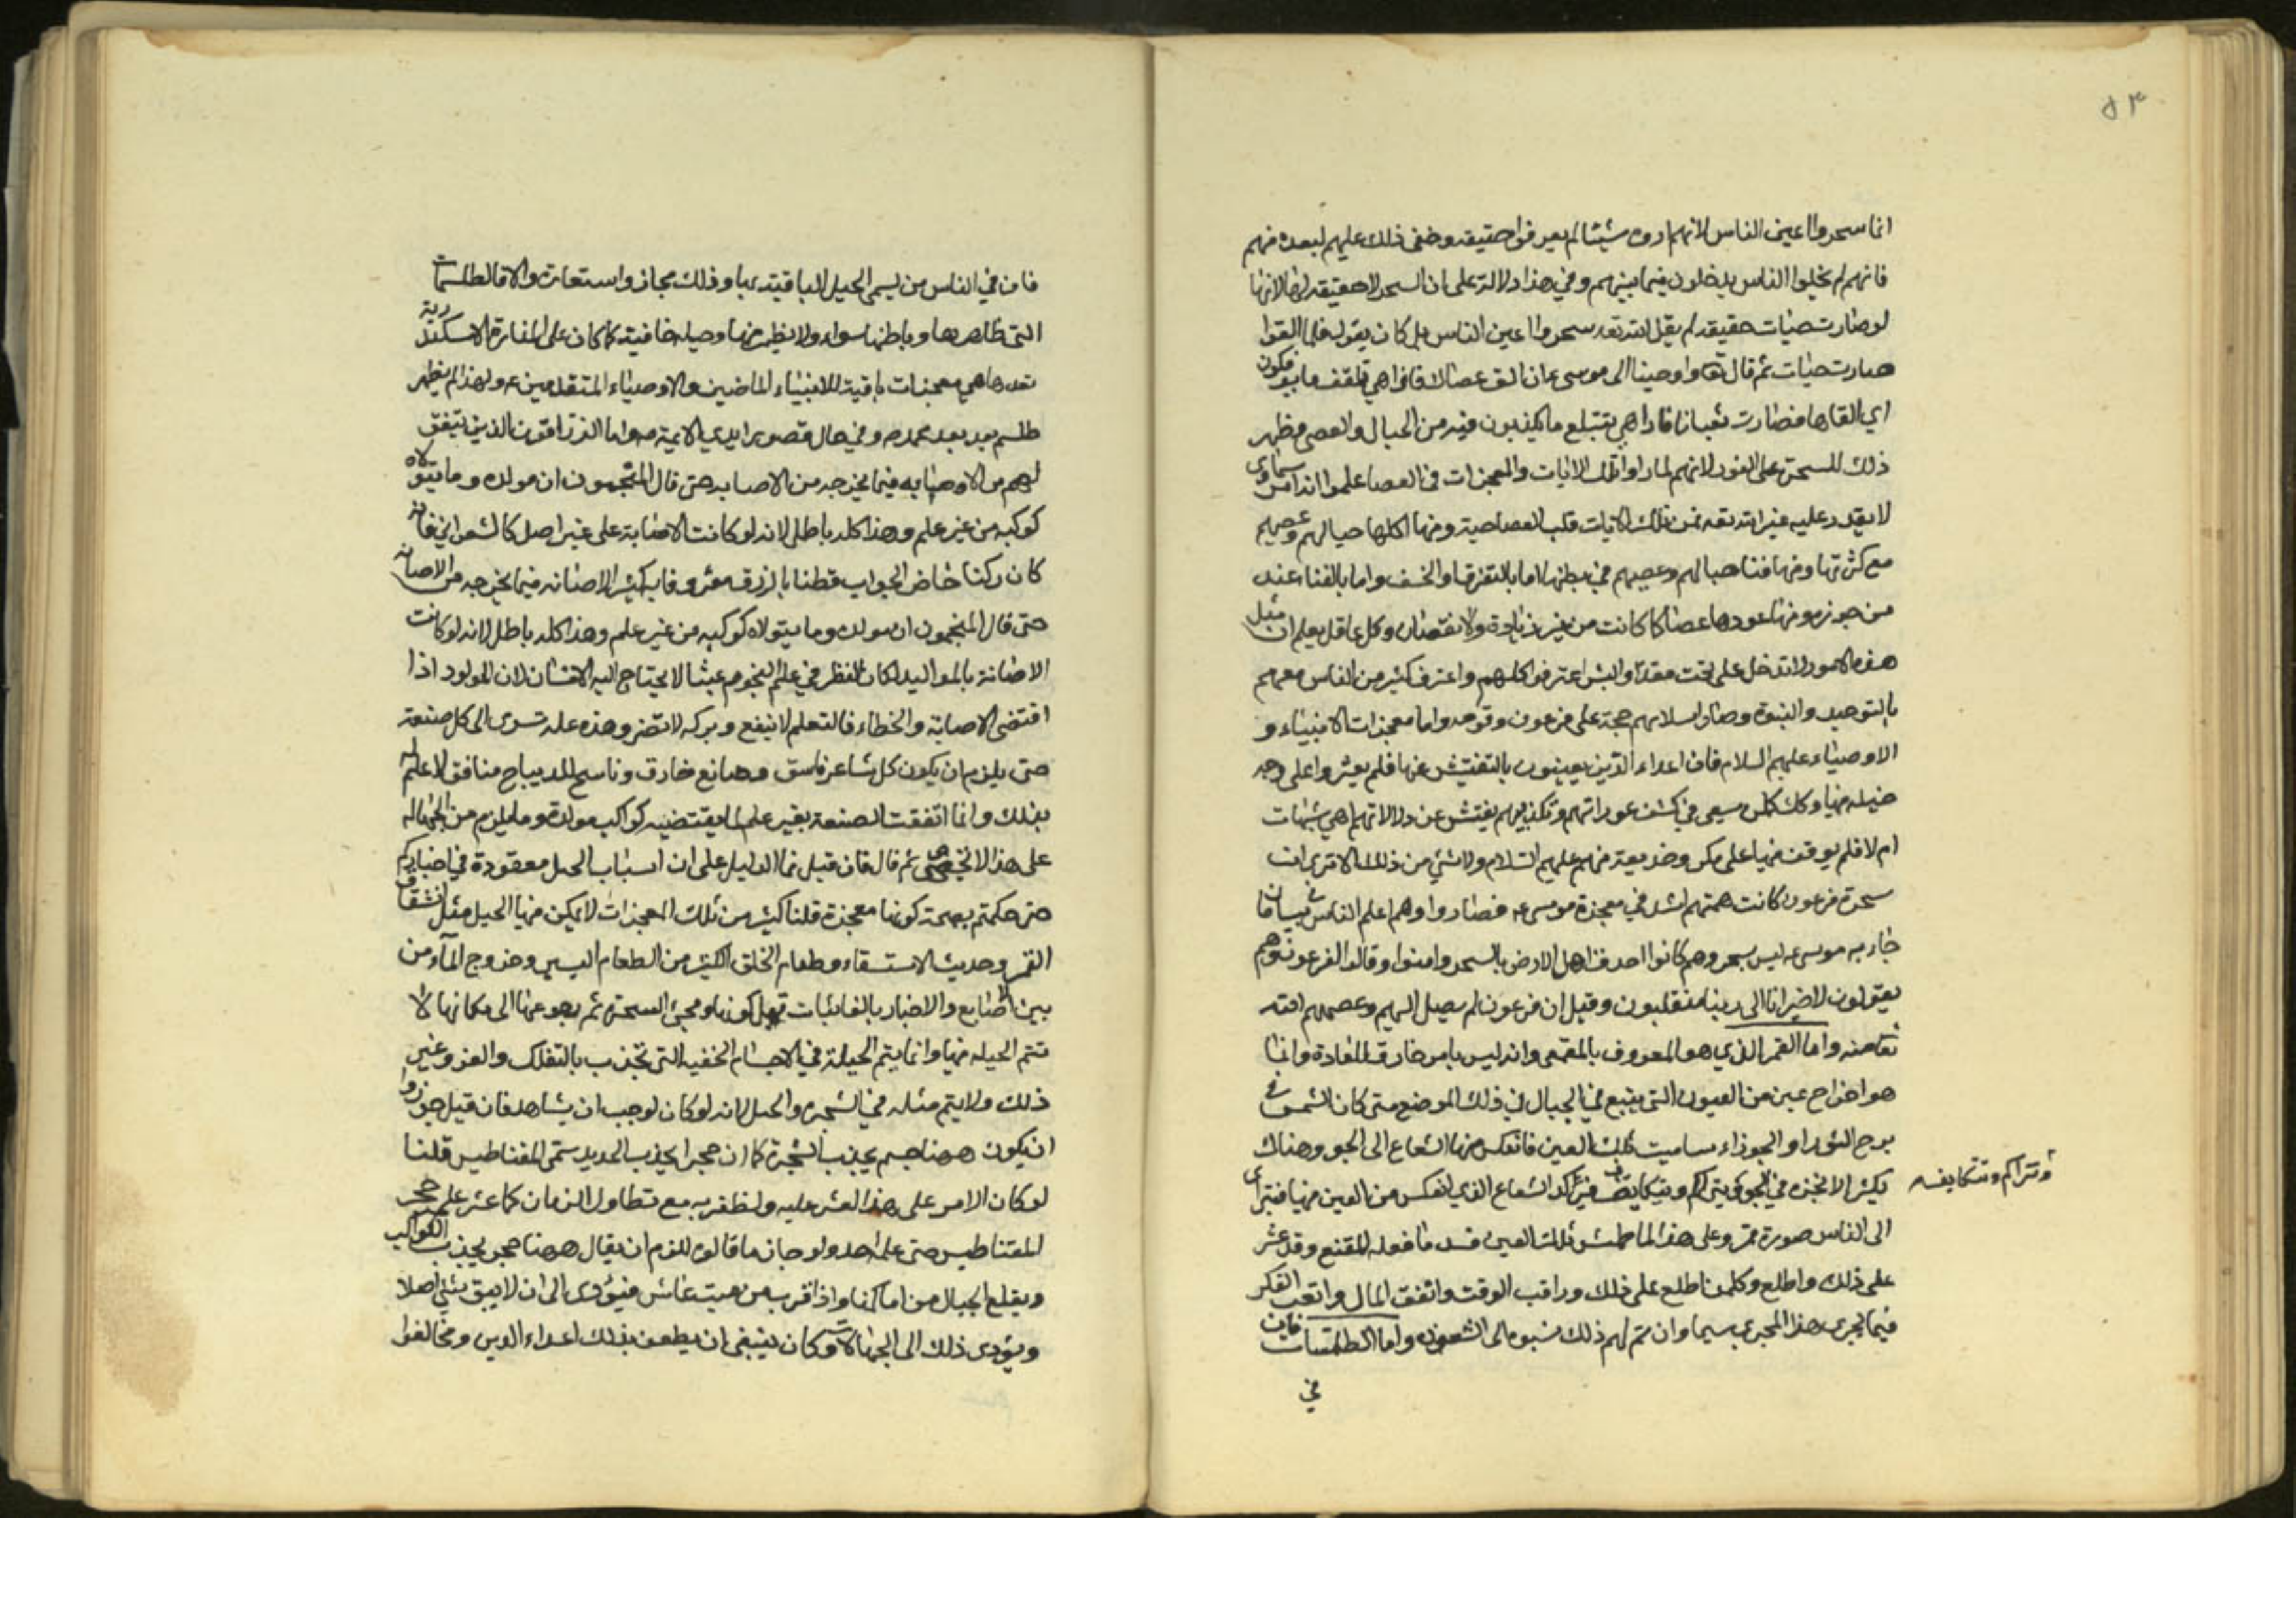 ٥٣
انما سحروا اعين الناس لانهم اروه شيئا لم يعرفوا حقيقته وخفى ذلك عليهم لبعده منهم
فانهم لم يخلوا الناس يدخلون فيما بينهم وفي هذا دلالة على ان السحر لا حقيقة لها لانها
لو صارت حيات حقيقة لم يقل الله تعه سحروا اعين الناس بل كان يقول فلما القوا
صارت حيات ثم قال تعا واوحينا الى موسى ع ان الق عصاك فاذا هي تلقف ما يؤفكون
اي القاها فصارت ثعبانا فاذا هي تبتلع ما يكذبون فيه من الحبال والعصي فظهر
ذلك للسحرة على الفور لانهم لما راوا تلك الايات والمعجزات في العصا علموا انه امر سماوي
لا يقدر عليه غير الله تعه فمن تلك الايات قلب العصا حية ومنها اكلها حبالهم وعصيهم
مع كثرتها ومنها فنا حبالهم وعصيهم في بطنها اما بالتفرق او الخسف واما بالفناء عند
من جوزه ومنها عودها عصا كما كانت من غير زيادة ولا نقصان وكل عاقل يعلم ان مثل
هذه الامور لا تدخل على تحت مقدور البشر اعترفوا كلهم واعترف كثير من الناس معهم
بالتوحيد والنبوة وصار اسلامهم حجة على فرعون وقومه واما معجزات الانبياء و
الاوصياء عليهم السلام فان اعداء الدين يعينون بالتفتيش عنها فلم يعثروا على وجه
حيلة منها وكك كل من سعى في كشف عوراتهم وتكذيبهم يفتش عن دلالاتهم اهي شبهات
ام لا فلم يوقف منها على مكر وخديعة منهم عليهم السلام ولا شئ من ذلك الا ترى ان
سحرة فرعون كانت همتهم اشد في معجزة موسى ع فصاروا وهم اعلم الناس في بيان ما
جاء به موسى ع ليس بسحر وهم كانوا احذق اهل الارض بالسحر وامنوا وقالوا لفرعون وهم
يقولون لا ضير انا الى ربنا منقلبون وقيل ان فرعون لم يصل اليهم وعصمهم الله
تعا منه واما القمر الذي هو المعروف بالمقنع وانه ليس بامر خارق للعادة وانما
هو اخراج عين من العيون التي ينبع في الجبال في ذلك الموضع متى كان الشمس في
برج الثور او الجوزاء سامت تلك العين فانعكس منها الشعاع الى الجو وهناك
يكثر الابخره في الجو ويتراكم ويتكاثف فيركد الشعاع الذي انعكس من العين منها فيترائى
وتتراكم وتتكاثف
الى الناس صورة قمر وعلى هذا لما طمست تلك العين فسد ما فعله المقنع وقد عثر
على ذلك واطلع وكل من اطلع على ذلك وراقب الوقت وانفق المال واتعب الفكر
فيما يجرى هذا المجرى سيما وان تم لهم ذلك نسبوه الى الشعوذه واما الطلسمات فان
في
فان في الناس من يسمى الحيل الباقية بها وذلك مجاز واستعارة والا فالطلسمات
التى ظاهرها وباطنها سواء ولا يظهر منها وحيله خافية كما كان على المنارة الاسكندرية
تعدها هي معجزات باقية للانبياء الماضين والاوصياء المتقدمين ع ولهذا لم يظهر
طلسم بعد محمد ص وفي حال قصور ايدي الايمة ع واما الزراقون الذين يتفق
لهم من الاوصابه فيما يخرجه من الاصابه حتى قال المنجمون ان مولده وما يتولاه
كوكبه من غير علم وهذا كله باطل لانه لو كانت الاصابة على غير اصل كالشعراني فانه
كان ركنا حاضر الجواب فطنا بالزرق معروفا به كثير الاصابه فيما يخرجه من الاصابه
حتى قال المنجمون ان مولده وما يتولاه كوكبه من غير علم وهذا كله باطل لانه لو كانت
الاصابة بالمواليد لكان النظر في علم النجوم عبثا لا يحتاج اليه الانسان لان المولود اذا
اقتضى الاصابة والخطاء فالتعلم لا ينفع وتركه لا تضر وهذه علة تسرى الى كل صنعة
حتى يلزم ان يكون كل شاعر فاسق وصانع خارق وناسج للديباج منافق لا علم له
بذلك وانما اتفقت الصنعة بغير علم لما يقتضيه كواكب مولده وما يلزم من الجهالة
على هذا لا تحصى ثم قال فان قيل فما الدليل على ان اسباب الحيل مفقودة في اخباركم
حتى حكمتم بصحة كونها معجزة قلنا كثير من تلك المعجزات لا يمكن فيها الحيل مثل انشقاق
القمر وحديث الاستسقاء وطعام الخلق الكثير من الطعام اليسير وخروج الماء من
بين اصابع والاخبار بالغائبات قبل كونها ومجئ الشجرة ثم رجوعها الى مكانها لا
تتم الحيله منها وانما يتم الحيلة في الاجسام الخفيه التى تجذب بالتفلك والغز وغير
ذلك ولا يتم مثله في الشجرة والجبل لانه لو كان لوجب ان يشاهد فان قيل جوزوا
ان يكون ههنا جسم يجذب الشجرة كما ان حجرا يجذب الحديد يسمى المغناطيس قلنا
لو كان الامر على هذا العثر عليه ولظفر به مع تطاول الزمان كما عثر على حجر
المغناطيس حتى علمه احد ولو جاز ما قالوه للزم ان يقال ههنا حجر يجذب الكواكب
ويقلع الجبال من اماكنها واذا قرب من ميت عاش فيؤدى الى ان لا يبق بشئ اصلا
ويؤدى ذلك الى الجهالات وكان ينبغى ان يطعن بذلك اعداء الدين ومخالفوا